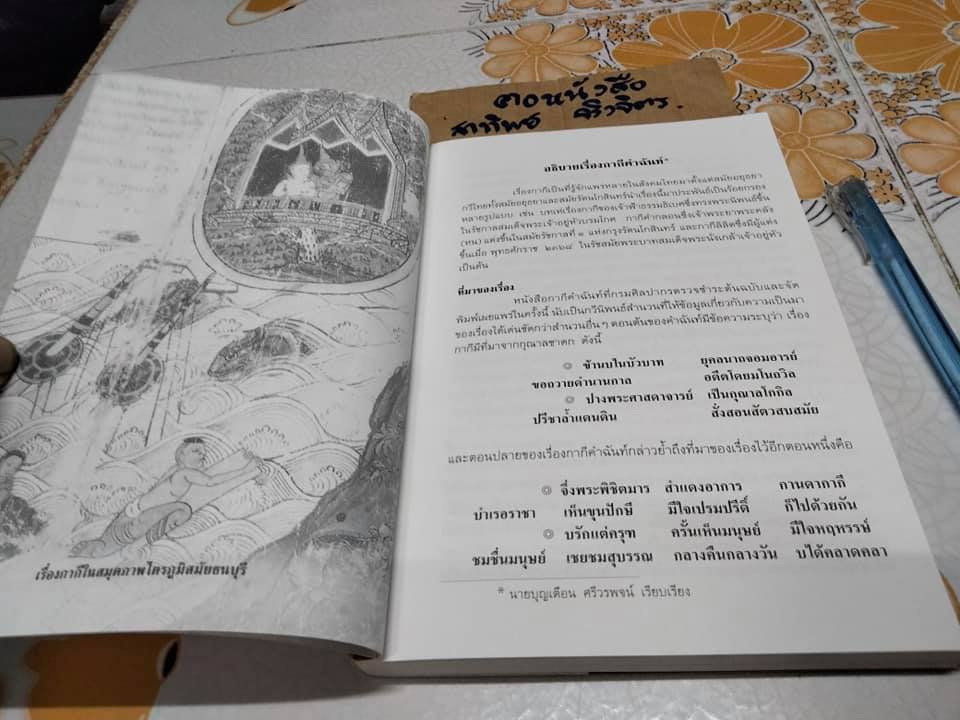 คอหนังสือ
สาทิพย์ ทิวจิตร.
เรื่องกากีในสมุดภาพไตรภูมิสมัยธนบุรี
อธิบายเรื่องกากีคำฉันท์*
เรื่องกากีเป็นที่รู้จักแพร่หลายในสังคมไทยมาตั้งแต่สมัยอยุธยา
กวีไทยทั้งสมัยอยุธยาและสมัยรัตนโกสินทร์นำเรื่องนี้มาประพันธ์เป็นร้อยกรอง
หลายรูปแบบ เช่น บทเห่เรื่องกากีของเจ้าฟ้าธรรมธิเบศซึ่งทรงพระนิพนธ์ขึ้น
ในรัชกาลสมเด็จพระเจ้าอยู่หัวบรมโกศ กากีคำกลอนซึ่งเจ้าพระยาพระคลัง
(หน) แต่งขึ้นในสมัยรัชกาลที่ ๑ แห่งกรุงรัตนโกสินทร์ และกากีลิลิตซึ่งมีผู้แต่ง
ขึ้นเมื่อ พุทธศักราช ๒๓๖๘ ในรัชสมัยพระบาทสมเด็จพระนั่งเกล้าเจ้าอยู่หัว
เป็นต้น
ที่มาของเรื่อง
หนังสือกากีคำฉันท์ที่กรมศิลปากรตรวจชำระต้นฉบับและจัด
พิมพ์เผยแพร่ในครั้งนี้ นับเป็นกวีนิพนธ์สำนวนที่ให้ข้อมูลเกี่ยวกับความเป็นมา
ของเรื่องได้เด่นชัดกว่าสำนวนอื่นๆ ตอนต้นของคำฉันท์มีข้อความระบุว่า เรื่อง
กากีมีที่มาจากกุณาลชาดก ดังนี้
๏ ข้านบในบัวบาท ยุคลนาถจอมอารย์
ขอถวายตำนานกาล อดีตโดยมโนถวิล
๏ ปางพระศาสดาจารย์ เป็นกุณาลโกกิล
ปรีชาล้ำแดนดิน สั่งสอนสัตวสบสมัย
และตอนปลายของเรื่องกากีคำฉันท์กล่าวย้ำถึงที่มาของเรื่องไว้อีกตอนหนึ่งคือ
๏ จึ่งพระพิชิตมาร สำแดงอาการ กานดากากี
บำเรอราชา เห็นขุนปักษี มีใจเปรมปรีดิ์ ก็ไปด้วยกัน
๏ บรักแต่ครุฑ ครั้นเห็นมนุษย์ มีใจหฤหรรษ์
ชมชื่นมนุษย์ เชยชมสุบรรณ กลางคืนกลางวัน บได้คลาดคลา
* นายบุญเตือน ศรีวรพจน์ เรียบเรียง